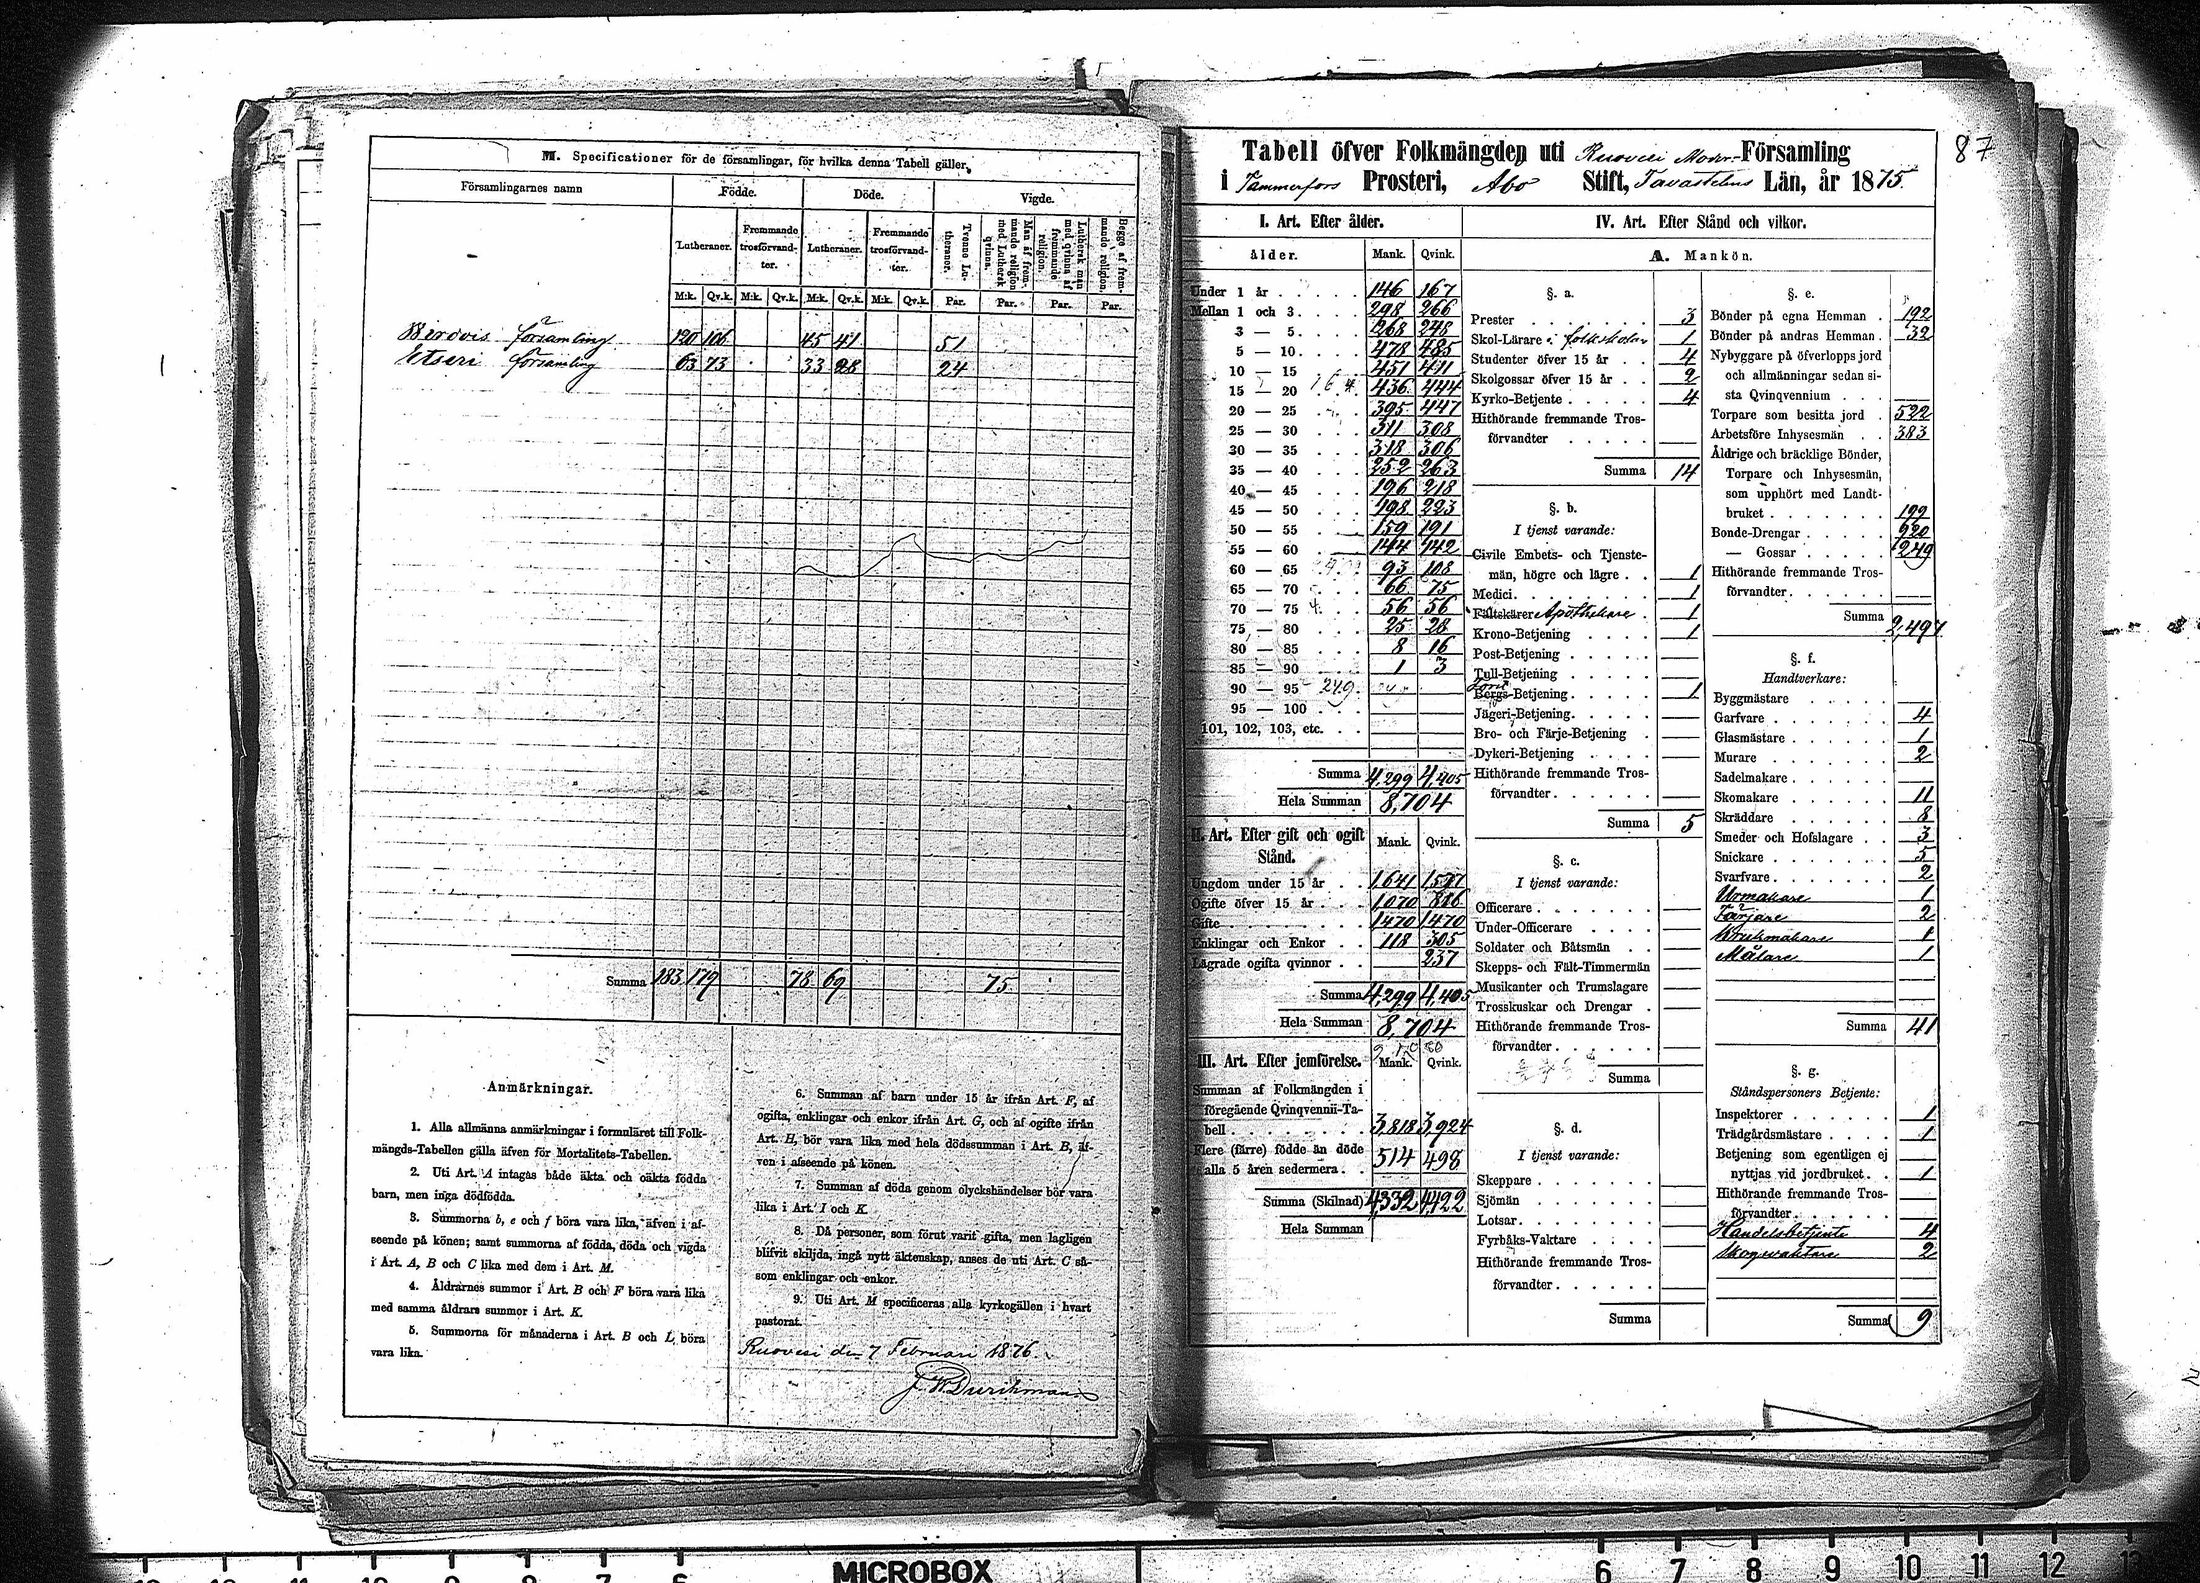 M. Specificationer för de församlingar, för hvilka denna Tabell gäller.
Församlingarnes namn
Födde.
Döde.
Vigde.
Lutheraner.
Fremmande trosförvandter.
Lutheraner.
Fremmande trosförvandter.
Tvenne Lutheraner.
Man af fremmande religion med Luthersk qvinna.
Luthersk man med qvinna af fremmande religion.
Begge af fremmande religion.
M:k. Qv.k. M:k. Qv.k. M:k. Qv.k. M:k. Qv.k. Par. Par. Par. Par.
församling 120 106 45 41 51
Etseri församling 63 73 33 28 24
Summa 183 179 78 69 75
Anmärkningar.
1. Alla allmänna anmärkningar i formuläret till Folk-
mängds-Tabellen gälla äfven för Mortalitets-Tabellen.
2. Uti Art. A intagas både äkta och oäkta födda
barn, men inga dödfödda.
3. Summorna b, e och f böra vara lika, äfven i af-
seende på könen; samt summorna af födda, döda och vigda
i Art. A, B och C lika med dem i Art. M.
4. Åldrarnes summor i Art. B och F böra vara lika
med samma åldrars summor i Art. K.
5. Summorna för månaderna i Art. B och L, böra
vara lika.
6. Summan af barn under 15 år ifrån Art. F, af
ogifta, enklingar och enkor ifrån Art. G, och af ogifte ifrån
Art. H, bör vara lika med hela dödssumman i Art. B, äf-
ven i afseende på könen.
7. Summan af döda genom olyckshändelser bör vara
lika i Art. I och K.
8. Då personer, som förut varit gifta, men lagligen
blifvit skiljda, ingå nytt äktenskap, anses de uti Art. C så-
som enklingar och enkor.
9. Uti Art. M specificeras alla kyrkogällen i hvart
pastorat.
Ruovesi den 7 Februari 1876.
87
Tabell öfver Folkmängden uti Ruovesi Moder-Församling
i Tammerfors Prosteri, Åbo Stift, Tavastehus Län, år 1875.
I. Art. Efter ålder.
Ålder. Mank. Qvink.
Under 1 år 146 167
Mellan 1 och 3 298 266
3 — 5 268 248
5 — 10 478 485
10 — 15 451 411
15 — 20 436 444
20 — 25 395 447
25 — 30 311 308
30 — 35 318 306
35 — 40 252 263
40 — 45 196 218
45 — 50 198 223
50 — 55 159 191
55 — 60 144 142
60 — 65 93 108
65 — 70 66 75
70 — 75 56 56
75 — 80 25 28
80 — 85 8 16
85 — 90 1 3
90 — 95 249
95 — 100
101, 102, 103, etc.
Summa 4,299 4,405
Hela Summan 8,704
II. Art. Efter gift och ogift Stånd. Mank. Qvink.
Ungdom under 15 år 1641 1577
Ogifte öfver 15 år 1070 816
Gifte 1470 1470
Enklingar och Enkor 118 305
Lägrade ogifta qvinnor 237
Summa 4,299 4,405
Hela Summan 8,704
III. Art. Efter jemförelse. Mank. Qvink.
Summan af Folkmängden i
föregäende Qvinqvennii-Ta-
bell 3,818 3,924
Flere (färre) födde än döde
alla 5 åren sedermera 514 498
Summa (Skilnad) 4332 4,422
Hela Summan
IV. Art. Efter Stånd och vilkor.
A. Mankön.
§. a.
Prester 3
Skol-Lärare i folkskolan 1
Studenter öfver 15 år 4
Skolgossar öfver 15 år 2
Kyrko-Betjente 4
Hithörande fremmande Tros-
förvandter
Summa 14
§. b.
I tjenst varande:
Civile Embets- och Tjenste-
män, högre och lägre 1
Medici 1
Fältskärer Apothekare 1
Krono-Betjening 1
Post-Betjening
Tull-Betjening
Bergs-Betjening 1
Jägeri-Betjening
Bro- och Färje-Betjening
Dykeri-Betjening
Hithörande fremmande Tros-
förvandter
Summa 5
§. c.
I tjenst varande:
Officerare
Under-Officerare
Soldater och Båtsmän
Skepps- och Fält-Timmermän
Musikanter och Trumslagare
Trosskuskar och Drengar
Hithörande fremmande Tros-
förvandter
Summa
§. d.
I tjenst varande:
Skeppare
Sjömän
Lotsar
Fyrbåks-Vaktare
Hithörande fremmande Tros-
förvandter
Summa
§. e.
Bönder på egna Hemman 192
Bönder på andras Hemman 32
Nybyggare på öfverlopps jord
och allmänningar sedan si-
sta Qvinqvennium
Torpare som besitta jord 522
Arbetsföre Inhysesmän 383
Åldrige och bräcklige Bönder,
Torpare och Inhysesmän,
som upphört med Landt-
bruket 199
Bonde-Drengar 920
— Gossar 249
Hithörande fremmande Tros-
förvandter
Summa 2,497
§. f.
Handtverkare:
Byggmästare
Garfvare 4
Glasmästare 1
Murare 2
Sadelmakare
Skomakare 11
Skräddare 8
Smeder och Hofslagare 3
Snickare 5
Svarfvare 2
Urmakare 1
Färjare 2
Krukmakare 1
Målare 1
Summa 41
§. g.
Ståndspersoners Betjente:
Inspektorer 1
Trädgårdsmästare 1
Betjening som egentligen ej
nyttjas vid jordbruket 1
Hithörande fremmande Tros-
förvandter
Handelsbetjente 4
Skogvaktare 2
Summa 9
MICROBOX
11 10 9 8 7 6
6 7 8 9 10 11 12 13